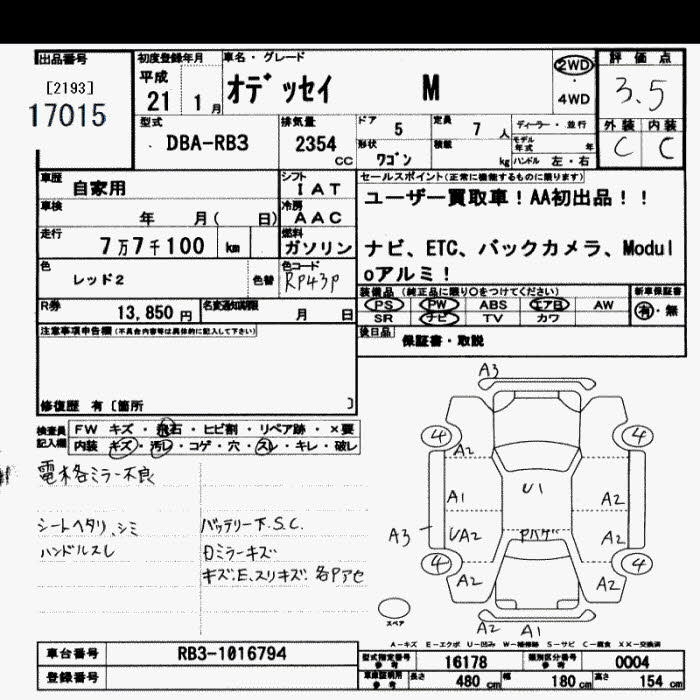 出品番号
[2193]
17015
初度登録年月
平成
21 1 月
車名・グレード
オデッセイ M
2WD
・
4WD
評価点
3.5
外装 内装
C C
型式
DBA-RB3
排気量
2354
CC
ドア 5
定員 7 人
ディーラー・並行
モデル年式 年
形状 ワゴン
積載 kg
ハンドル 左・右
車歴
自家用
シフト
IAT
車検
年 月( 日)
冷房
AAC
走行
7万7千100 km
燃料
ガソリン
色
レッド2
色替
色コード
RP43P
R券
13,850 円
名変通知期限
月 日
セールスポイント(正常に機能するものに限ります)
ユーザー買取車！AA初出品！！
ナビ、ETC、バックカメラ、Modul
oアルミ！
装備品 (純正品に限り○をつけてください)
PS PW ABS エアB AW
SR ナビ TV カワ
新車保証書
有・無
後日品
保証書・取説
注意事項申告欄(不具合内容等は具体的に記入して下さい)
修復歴 有〔箇所 〕
検査員記入欄
FW キズ・飛石・ヒビ割・リペア跡・×要
内装 キズ・汚レ・コゲ・穴・スレ・キレ・破レ
電格ミラー不良
シートヘタリ、シミ
ハンドルスレ
バッテリー下.S.C.
日ミラーキズ
キズ.E.スリキズ.各Pアセ
A3
4 4
A2
A1 U1 A2
A3 UA2 A2
4 4
A2 A2
A2 A1
スペア
A－キズ E－エクボ U－凹み W－補修跡 S－サビ C－腐食 XX－交換済
車台番号 RB3-1016794
登録番号
型式指定番号
参考 16178
類別区分番号
参考 0004
車庫証明用
参考
長さ 480 cm
幅 180 cm
高さ 154 cm